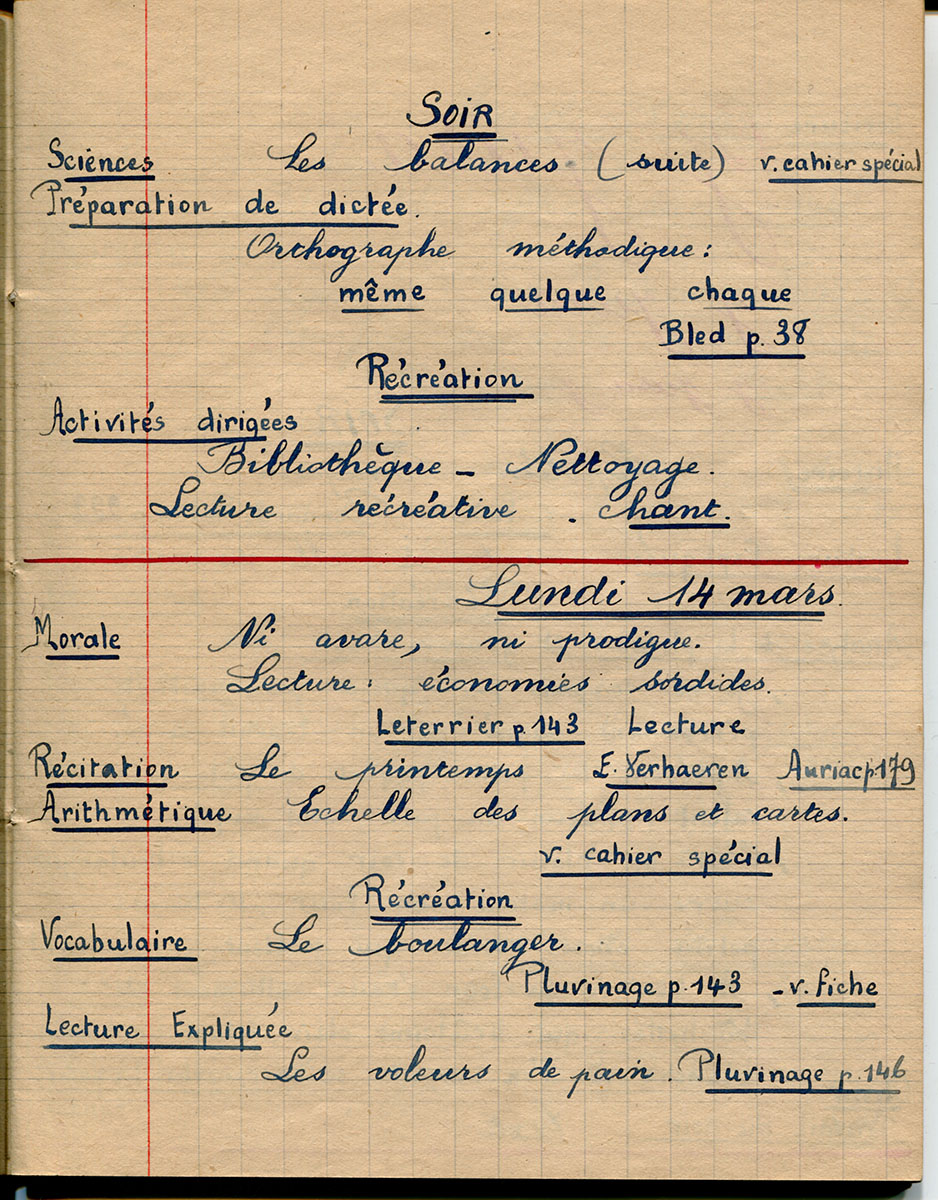 Soir
Sciences Les balances (suite) v. cahier spécial
Préparation de dictée.
Orthographe méthodique :
même quelque chaque
Bled p. 38
Récréation
Activités dirigées
Bibliothèque – Nettoyage.
Lecture récréative . chant.
Lundi 14 mars.
Morale Ni avare, ni prodigue.
Lecture : économies sordides.
Leterrier p. 143 Lecture
Récitation Le printemps E. Verhaeren Auriac p. 179
Arithmétique Echelle des plans et cartes.
v. cahier spécial
Récréation
Vocabulaire Le boulanger.
Pluvinage p. 143 - v. fiche
Lecture Expliquée
Les voleurs de pain. Pluvinage p. 146